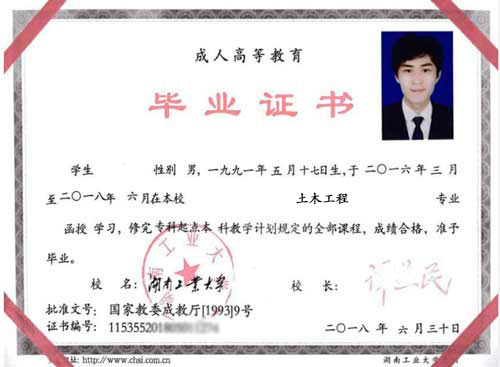 成人高等教育
毕业证书
学生 性别 男，一九九一年 五 月 十七日生，于 二〇一六年 三 月
至二〇一八年 六 月在本校 土木工程 专业
函授 学习，修完 专科起点本 科教学计划规定的全部课程，成绩合格，准予
毕业。
校 名：湖南工业大学 校 长：
批准文号： 国家教委成教厅[1993]9号
证书编号： 11535520
二〇一八年 六 月 三十日
http://www.chsi.com.cn 湖南工业大学